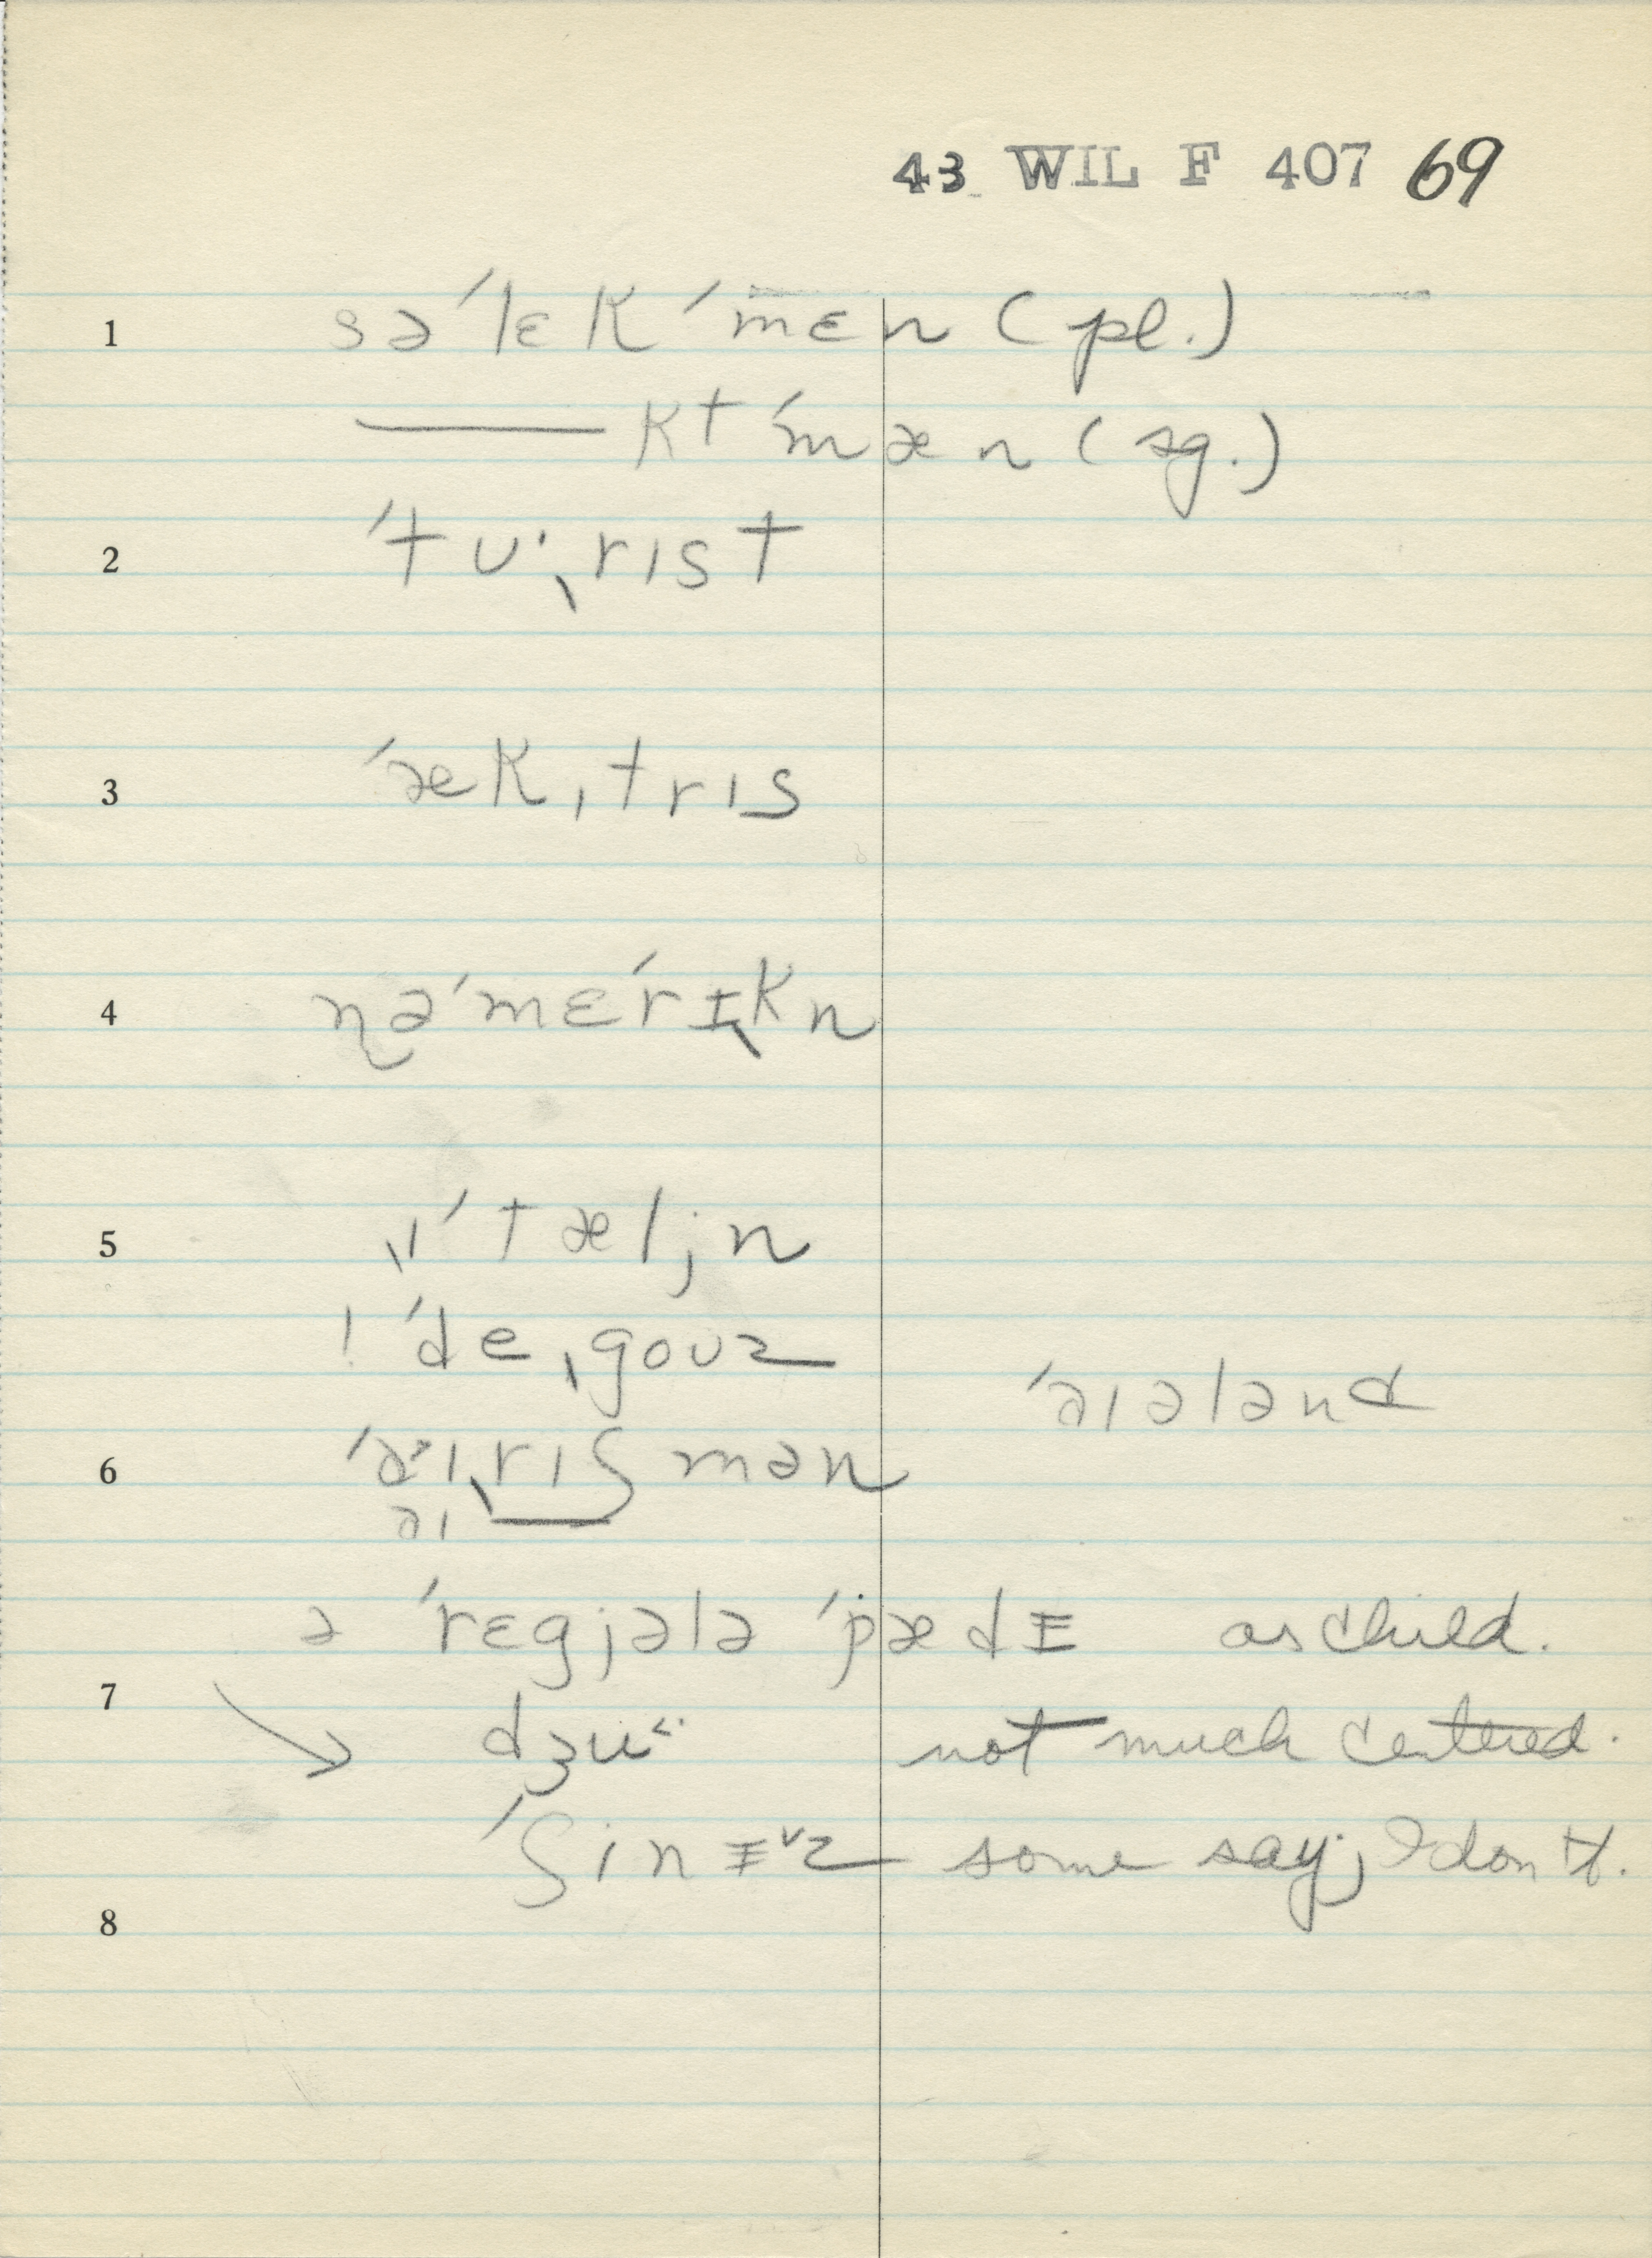 43 WIL F 407 69
1 sə ˈlɛk ˈmɛn (pl.)
—— kt ˈmæn (sg.)
2 ˈtʊ·ˌrɪst
3 ˈæk ˌtrɪs
4 n̩ə ˈmɛˊrᵻkn
5 ˌɪ ˈtæljn
! ˈde ˌgoʊz
ˈaɪələnd
6 ˈaˑɪˌrɪʃmən
aɪ
ə ˈrɛgjələ ˈpædᵻ as child.
7 → dʒu˂· not much centered.
ˈʃinᵻ˅z some say; I don't.
8